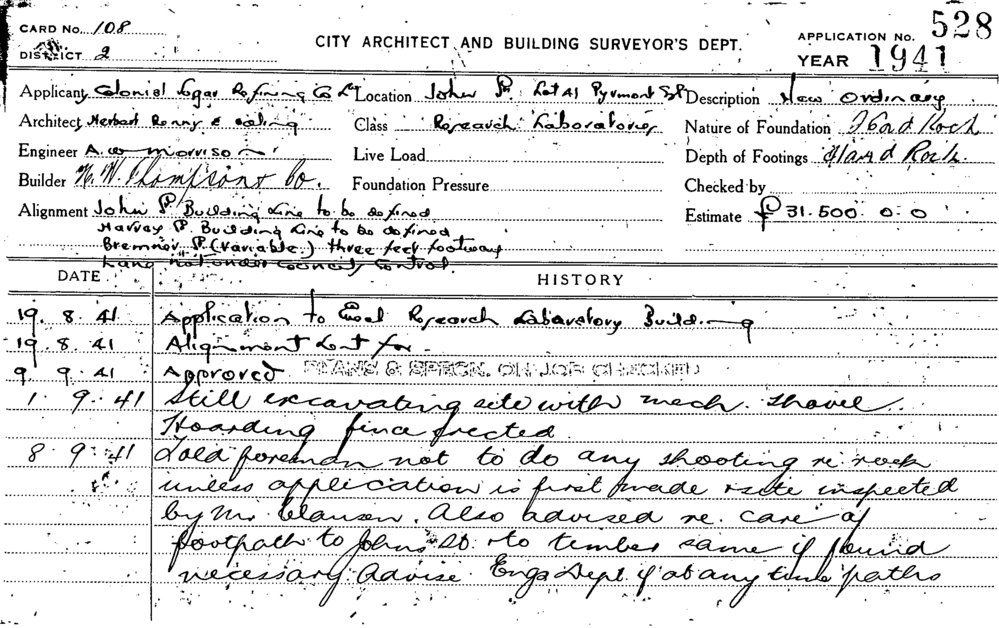 CARD No. 108
DISTRICT 2
CITY ARCHITECT AND BUILDING SURVEYOR'S DEPT.
APPLICATION No. 528
YEAR 1941
Applicant Colonial Sugar Refining Co Ld Location John St. Pyrmont Description New Ordinary
Architect Herbert & Class Research Laboratories Nature of Foundation Hard Rock
Engineer A. W Morrison Live Load Depth of Footings Hard Rock.
Builder H. W. Thompson & Co. Foundation Pressure Checked by
Alignment John St Building Line to be defined Estimate £ 31.500. 0. 0
Harvey St. Building Line to be defined
Bremner St (variable) three feet footway
Lane not under Council's Control.
DATE HISTORY
19. 8. 41 Application to Erect Research Laboratory Building
19. 8. 41 Alignment sent for
9. 9. 41 Approved PLANS & SPECN. ON JOB CHECKED
1. 9. 41 Still excavating site with mech. shovel.
Hoarding fence erected.
8. 9. 41 Told foreman not to do any shooting re. rock
unless application is first made & site inspected
by Mr. Also advised re. care of
footpath to John St. & to timber same if found
necessary. Advise Engs Dept. if at any time paths